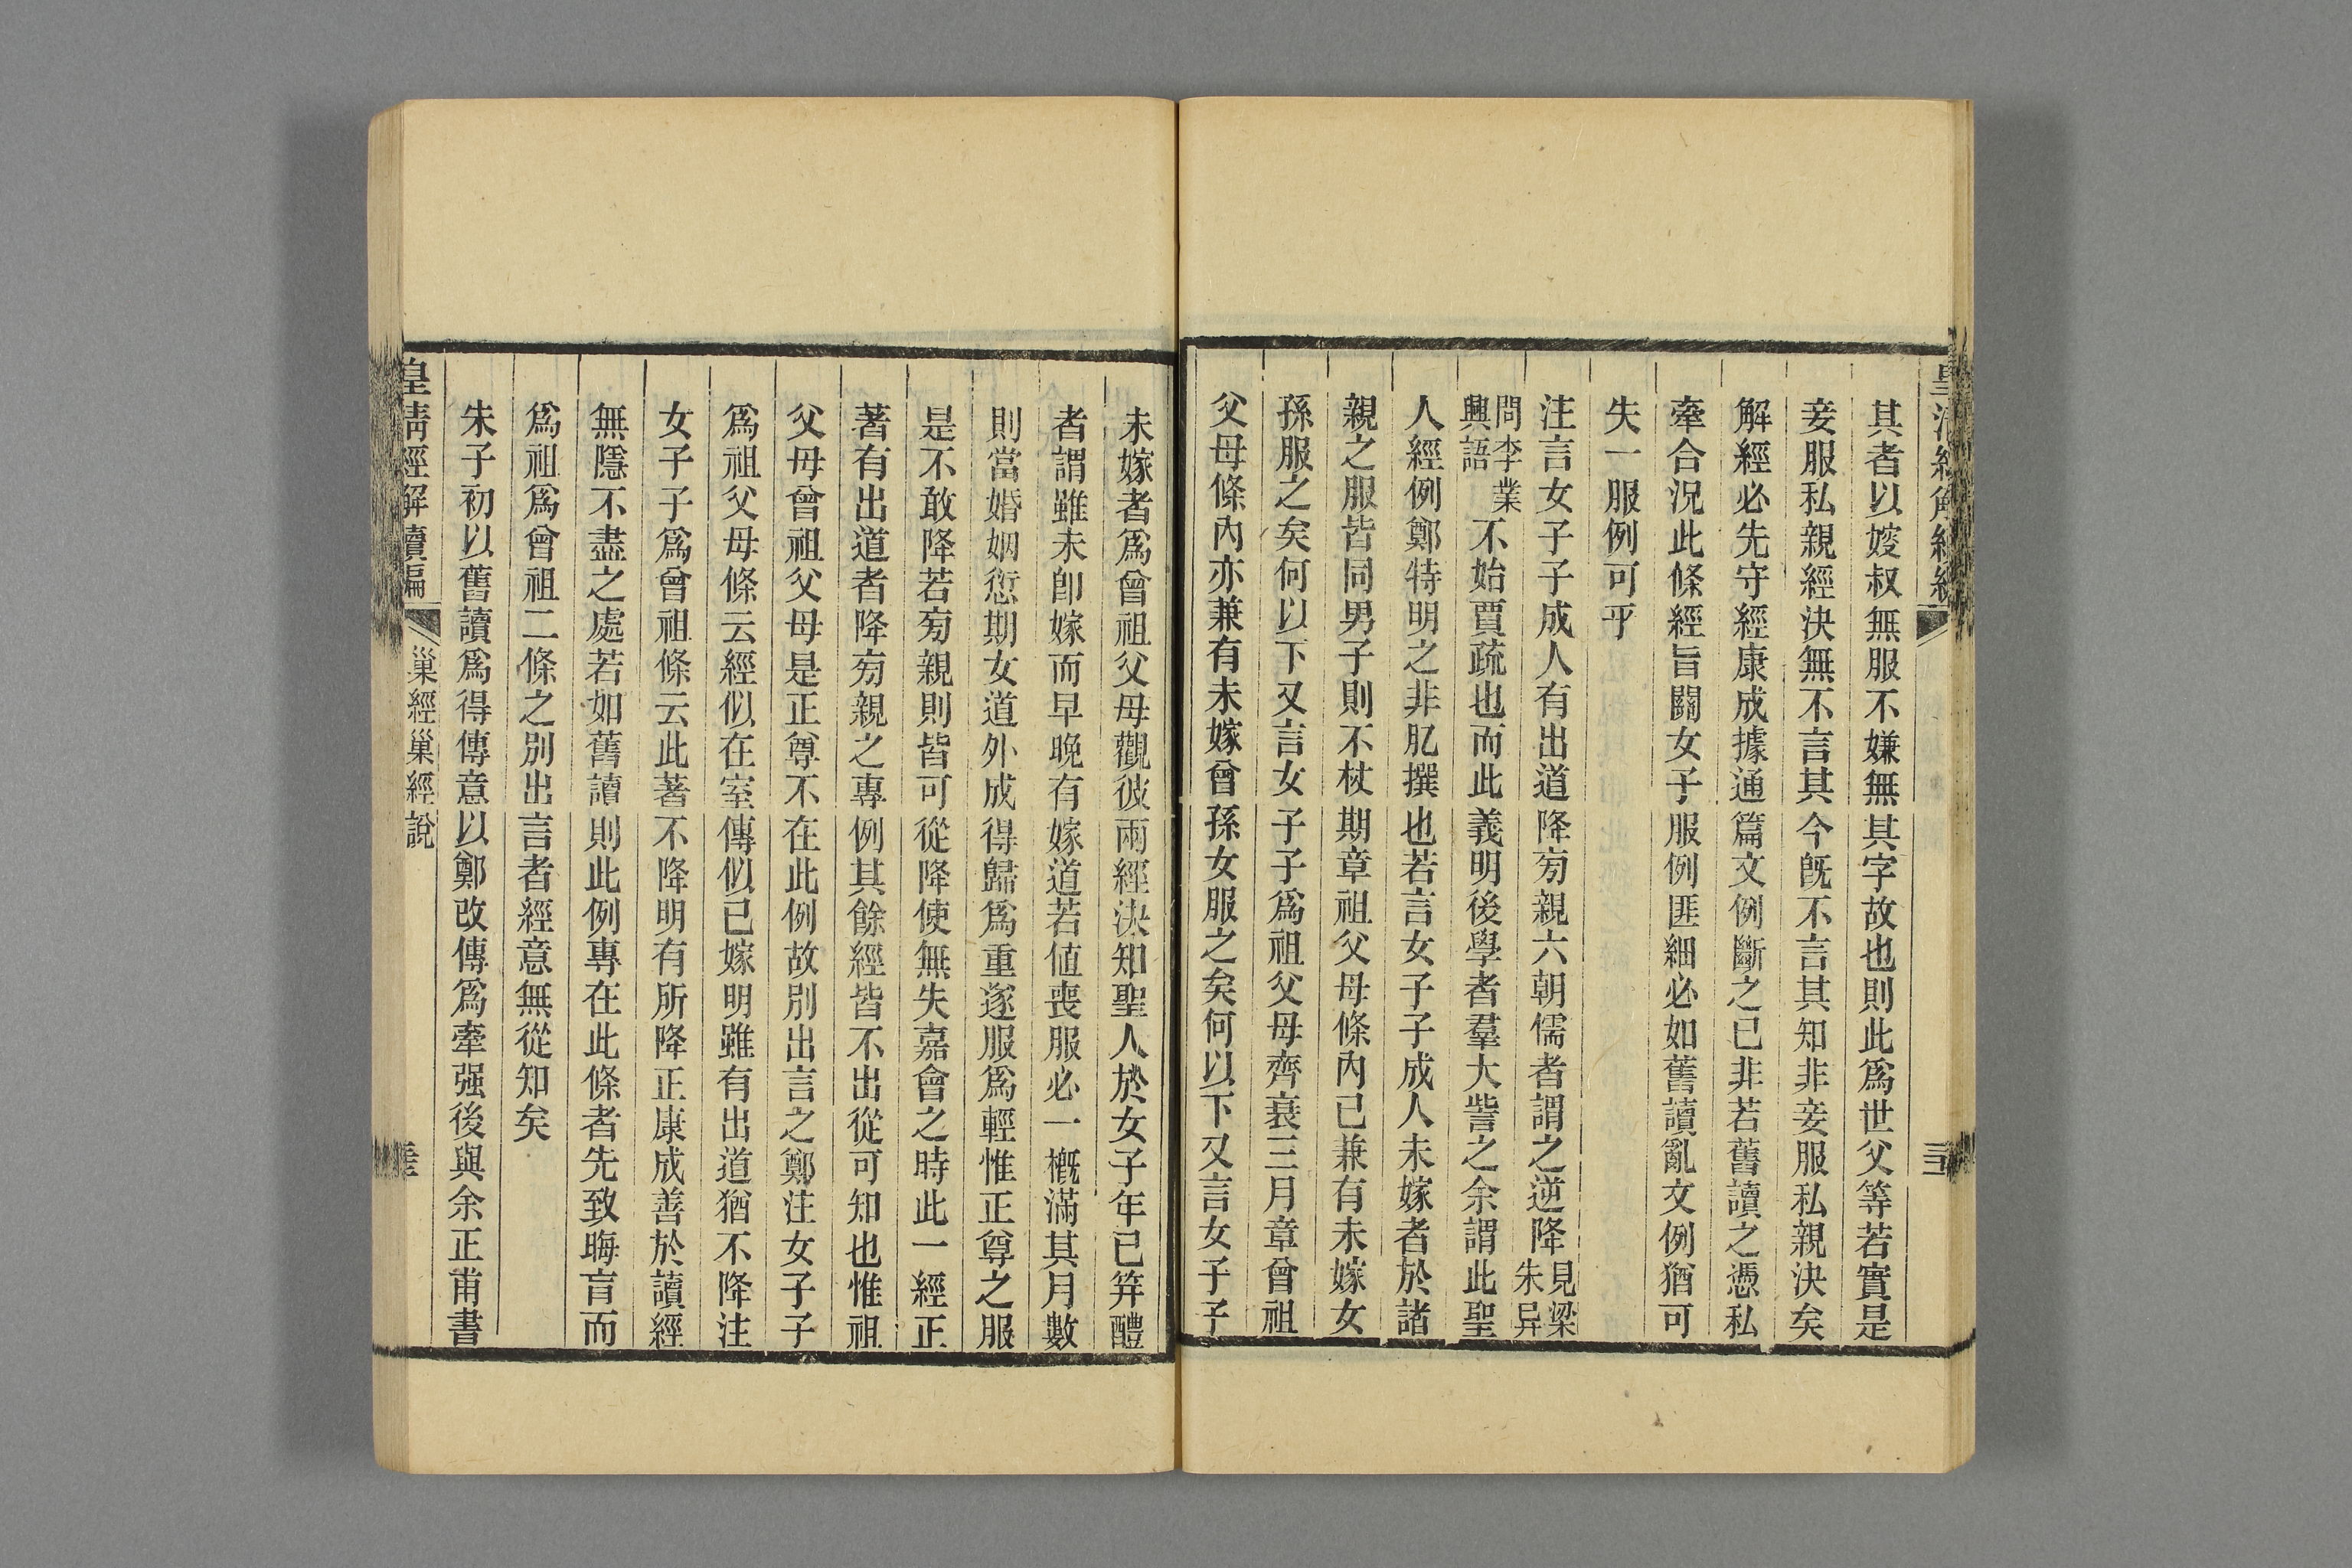 其者以嫂叔無服不嫌無其字故也則此爲世父等若實是
妾服私親經決無不言其今旣不言其知非妾服私親決矣
解經必先守經康成據通篇文例斷之已非若舊讀之憑私
牽合況此條經旨關女子服例匪細必如舊讀亂文例猶可
失一服例可乎
注言女子子成人有出道降旁親六朝儒者謂之逆降見梁朱异
問李業興語不始賈疏也而此義明後學者羣大訾之余謂此聖
人經例鄭特明之非肊撰也若言女子子成人未嫁者於諸
親之服皆同男子則不杖期章祖父母條內已兼有未嫁女
孫服之矣何以下又言女子子爲祖父母齊衰三月章曾祖
父母條內亦兼有未嫁曾孫女服之矣何以下又言女子子
未嫁者爲曾祖父母觀彼兩經決知聖人於女子年已筓醴
者謂雖未卽嫁而早晚有嫁道若値喪服必一槪滿其月數
則當婚姻愆期女道外成得歸爲重遂服爲輕惟正尊之服
是不敢降若旁親則皆可從降使無失嘉會之時此一經正
著有出道者降旁親之專例其餘經皆不出從可知也惟祖
父母曾祖父母是正尊不在此例故別出言之鄭注女子子
爲祖父母條云經似在室傳似已嫁明雖有出道猶不降注
女子子爲曾祖條云此著不降明有所降正康成善於讀經
無隱不盡之處若如舊讀則此例專在此條者先致晦盲而
爲祖爲曾祖二條之別出言者經意無從知矣
朱子初以舊讀爲得傳意以鄭改傳爲牽强後與余正甫書
皇淸經解續編
巢經巢經說